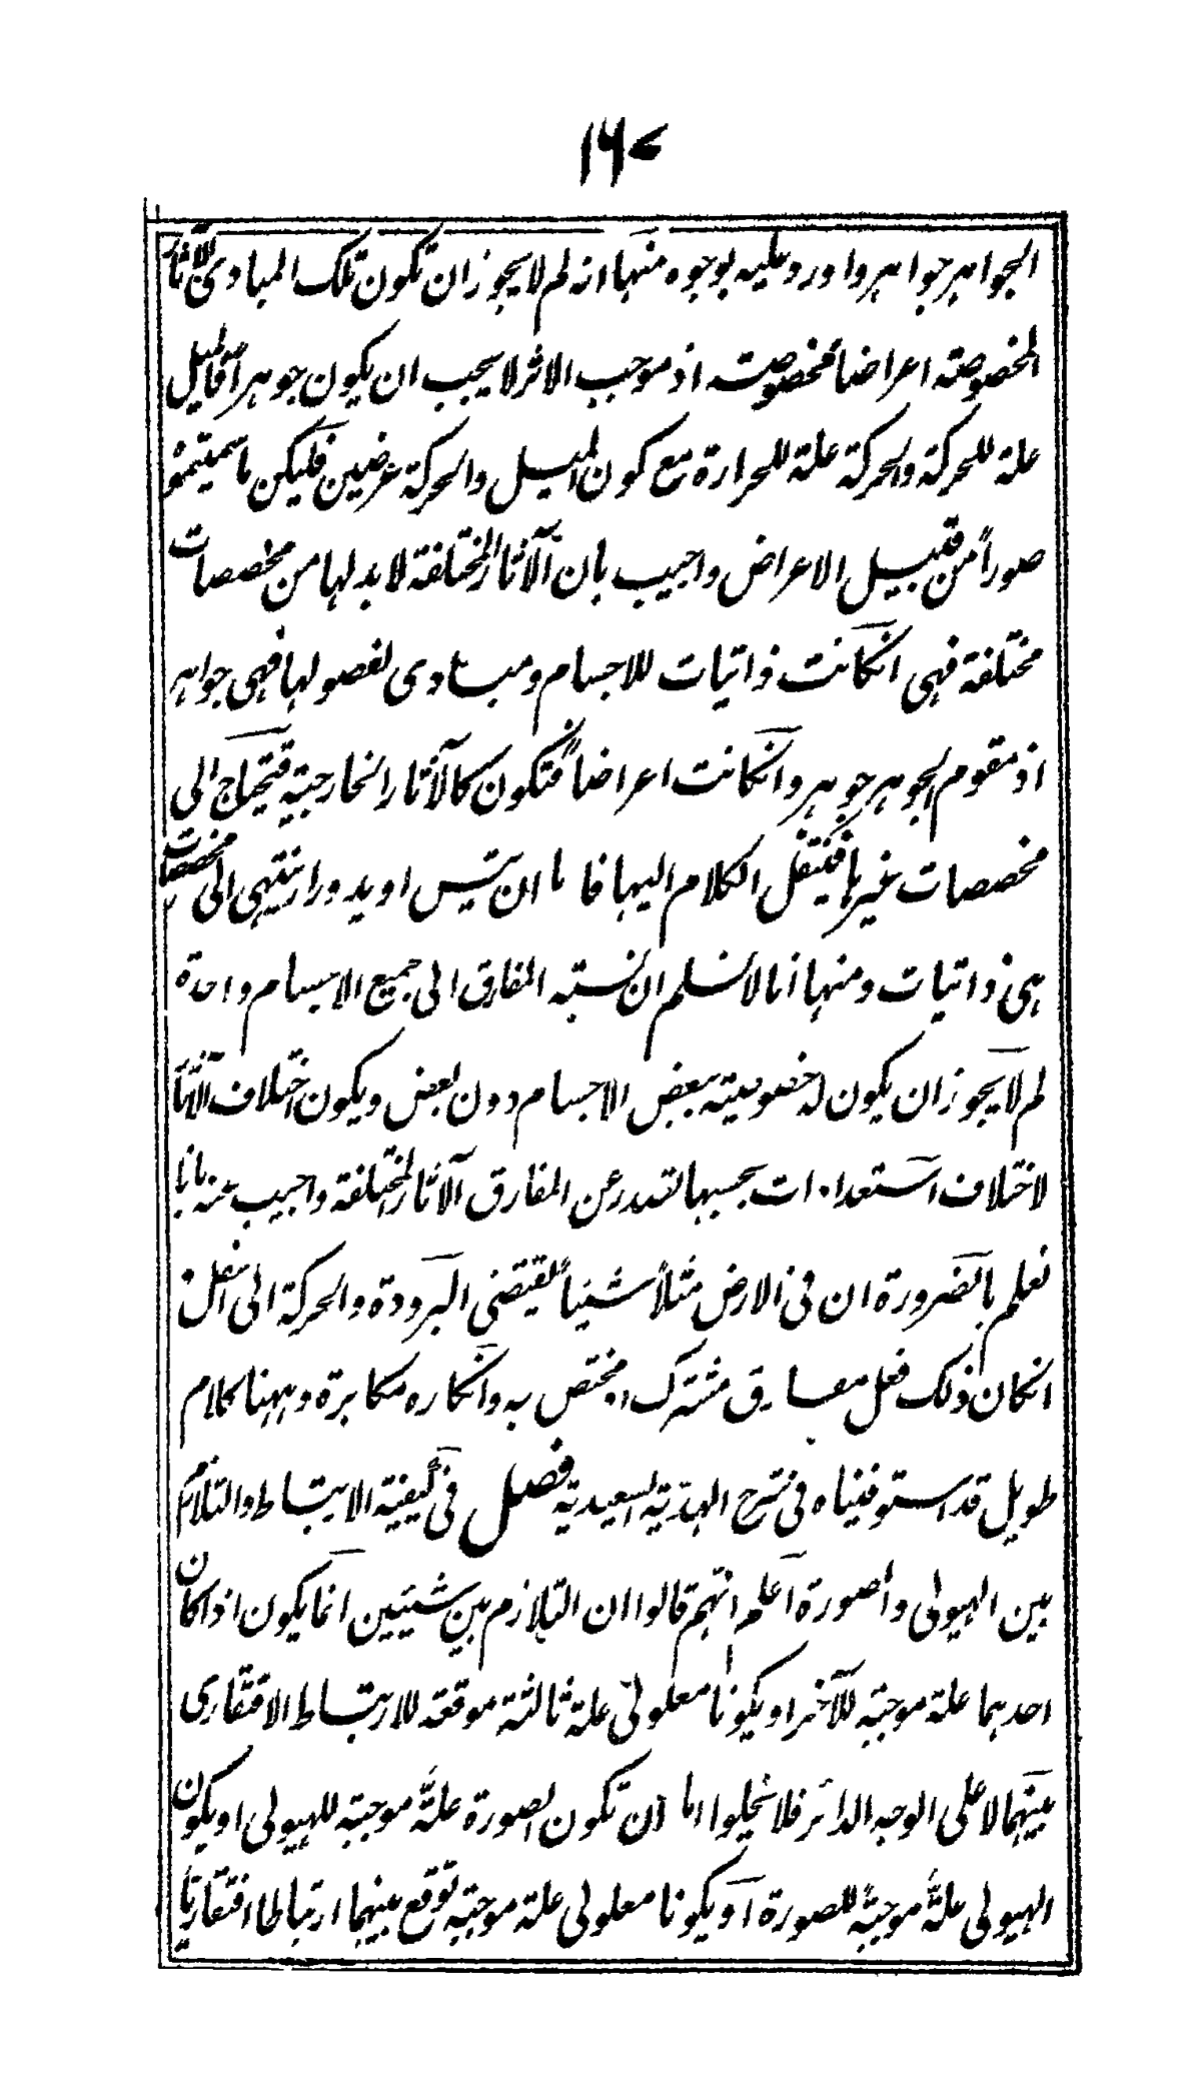 ۱۶۷
الجواهر جواهر واورد عليه بوجوه منها انه لم لا يجوز ان تكون تلك المبادى للآثار
المخصوصة اعراضا مخصوصة اذ موجب الاثر لا يجب ان يكون جوهراً فالميل
علة للحركة والحركة علة للحرارة مع كون الميل والحركة عرضين فليكن ما سميتموه
صوراً من قبيل الاعراض واجيب بان الآثار المختلفة لابد لها من مخصصات
مختلفة فهى انكانت ذاتيات للاجسام ومبادى لفصولها فهى جواهر
اذ مقوم الجوهر جوهر وانكانت اعراضاً فتكون كالآثار الخارجية فتحتاج الى
مخصصات غيرها فننقل الكلام اليها فاما ان يتس او يدور او ينتهى الى مخصصات
هى ذاتيات ومنها انا لا نسلم ان نسبة المفارق الى جميع الاجسام واحدة
لم لا يجوز ان يكون له خصوصية ببعض الاجسام دون بعض ويكون اختلاف الآثار
لاختلاف استعدادات بحسبها تصدر عن المفارق الآثار المختلفة واجيب عنه بانا
نعلم بالضرورة ان فى الارض مثلاً شيئاً يقتضى البرودة والحركة الى اسفل و
انكان ذلك فعل مفارق مشترك او مختص به وانكاره مكابرة وههنا كلام
طويل قد استوفيناه فى شرح الهدية السعيدية فصل فى كيفية الارتباط والتلازم
بين الهيولى والصورة اعلم انهم قالوا ان التلازم بين شيئين انما يكون اذا كان
احدهما علة موجبة للآخر او يكونا معلولى علة ثالثة موقعة للارتباط الافتقارى
بينهما لا على الوجه الدائر فلا يخلوا اما ان تكون الصورة علةً موجبة للهيولى او يكون
الهيولى علةً موجبةً للصورة او يكونا معلولى علة موجبة توقع بينهما ارتباطا افتقاريا